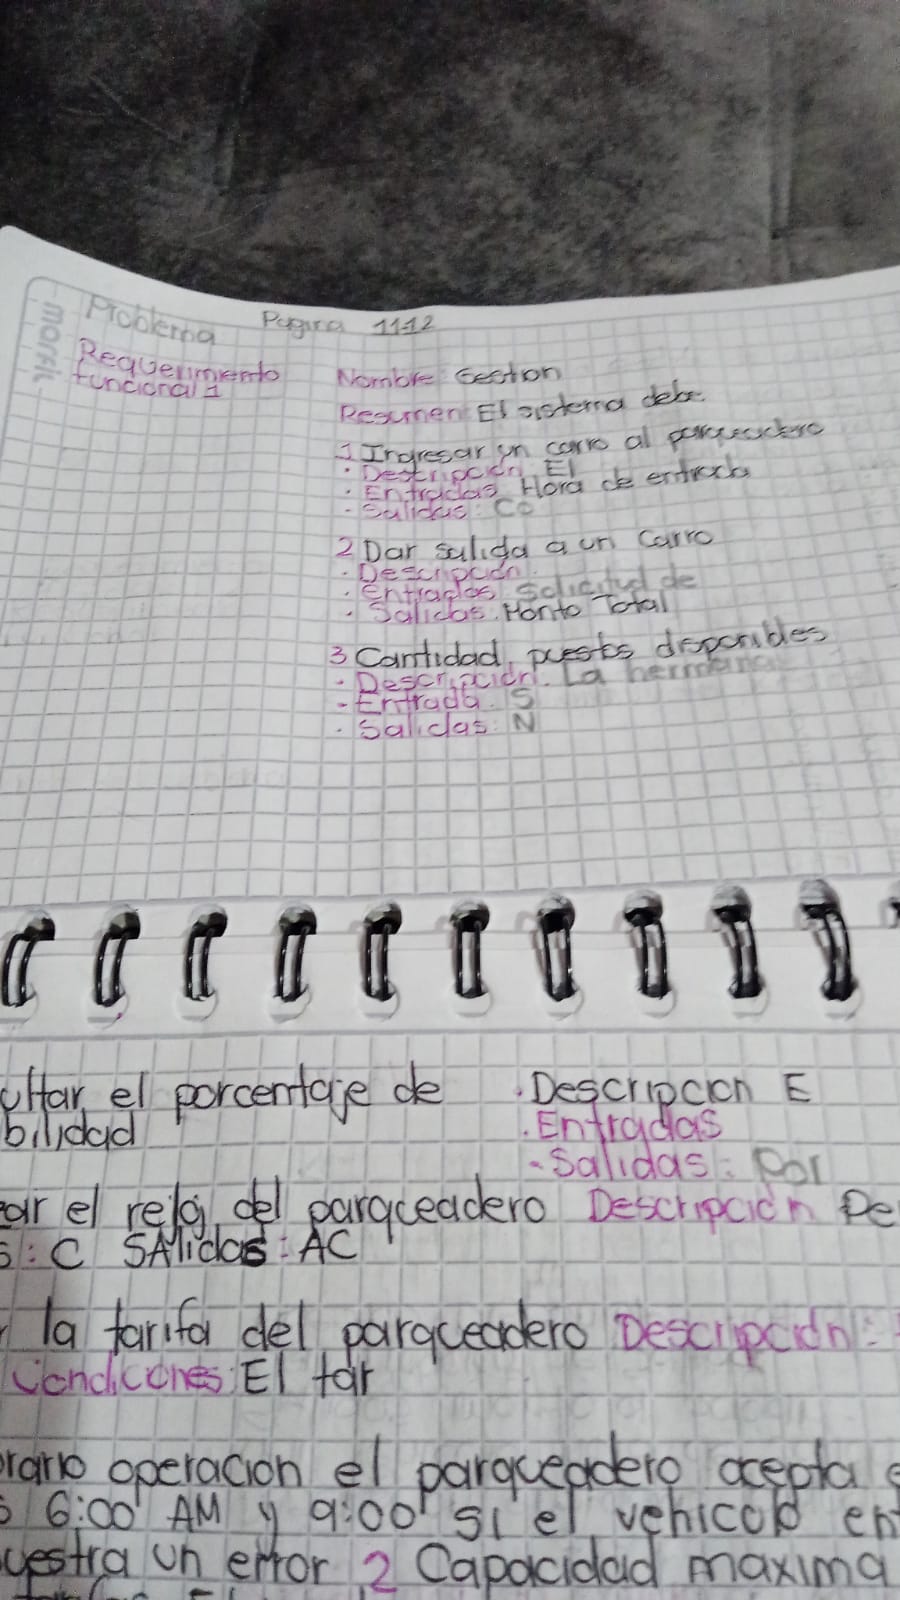 marfil
Problema Pagina 11-12
Requerimiento
funcional 1
Nombre: Gestion
Resumen: El sistema debe
1 Ingresar un carro al parqueadero
· Descripción El
· Entradas Hora de entrada
· Salidas: Co
2 Dar salida a un carro
· Descripción
· Entradas Solicitud de
· Salidas. Monto Total
3 Cantidad, puestos disponibles
· Descripción. La hermana
- Entrada. S
· Salidas: N
ultar el porcentaje de · Descripción E
bilidad · Entradas
- Salidas: Por
ar el reloj del parqueadero Descripción De
S: C SAlidas: AC
la tarifa del parqueadero Descripcidn:
Condiciones: El tar
rario operacion el parqueadero acepta
6:00 AM y 9:00 si el vehiculo en
uestra un error 2 Capacidad maxima